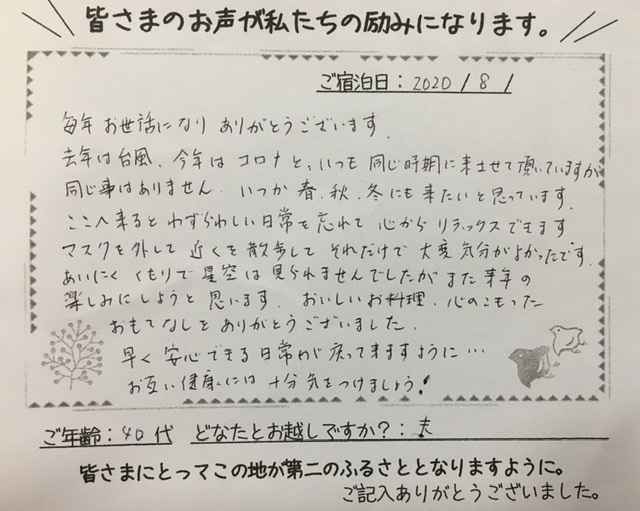 皆さまのお声が私たちの励みになります。
ご宿泊日：2020/8/
毎年お世話になりありがとうございます。
去年は台風、今年はコロナと、いつも同じ時期に来させて頂いていますが
同じ事はありません。いつか春、秋、冬にも来たいと思っています。
ここへ来るとわずらわしい日常を忘れて心からリラックスできます
マスクを外して近くを散歩してそれだけで大変気分がよかったです。
あいにくくもりで星空は見られませんでしたがまた来年の
楽しみにしようと思います。おいしいお料理、心のこもった
おもてなしをありがとうございました。
早く安心できる日常が戻ってきますように…
お互い健康には十分気をつけましょう!
ご年齢：40代 どなたとお越しですか？：夫
皆さまにとってこの地が第二のふるさととなりますように。
ご記入ありがとうございました。